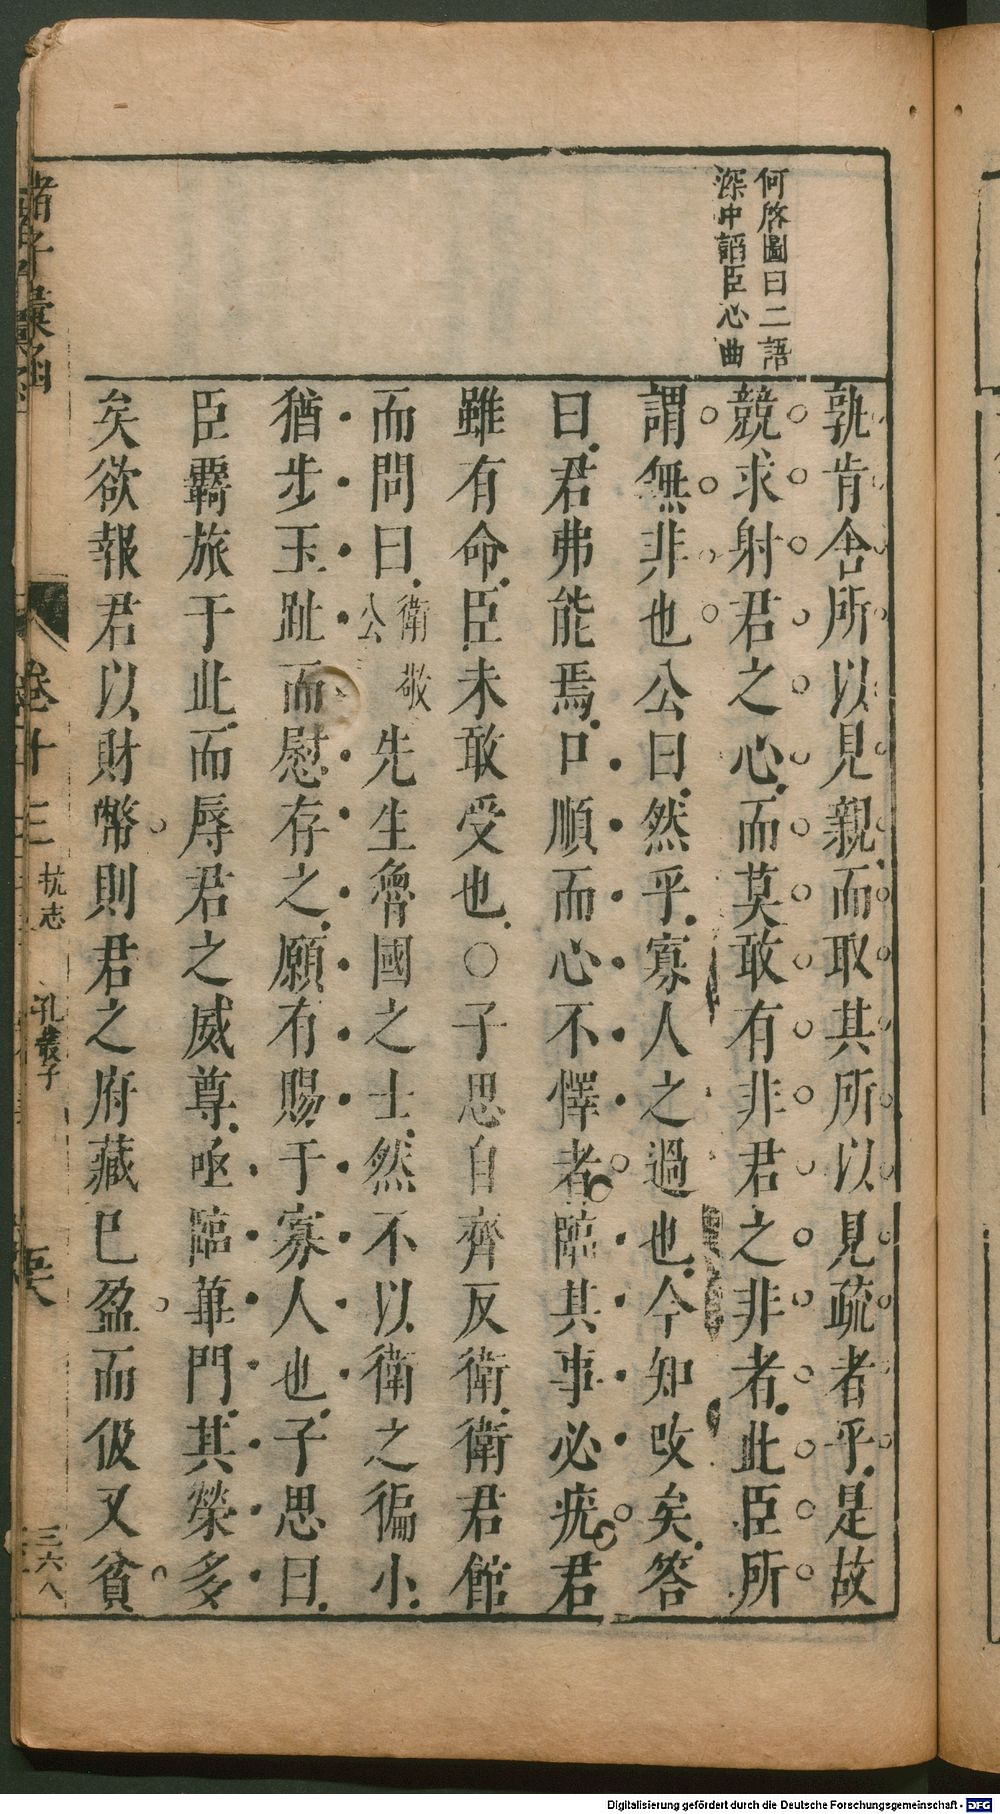 何啓圖曰二語
深中諂臣心曲
孰肯舍所以見親而取其所以見疏者乎是故
競求射君之心而莫敢有非君之非者此臣所
謂無非也公曰然乎寡人之過也今知改矣答
曰君弗能焉口順而心不懌者臨其事必疣君
雖有命臣未敢受也〇子思自齊反衛衛君館
而問曰衛敬公先生魯國之士然不以衛之褊小
猶步玉趾而慰存之願有賜于寡人也子思曰
臣羇旅于此而辱君之威尊亟臨蓽門其榮多
矣欲報君以財幣則君之府藏已盈而伋又貧
諸子彙函
卷十三
抗志
孔叢子
三六八
Digitalisierung gefördert durch die Deutsche Forschungsgemeinschaft - DFG